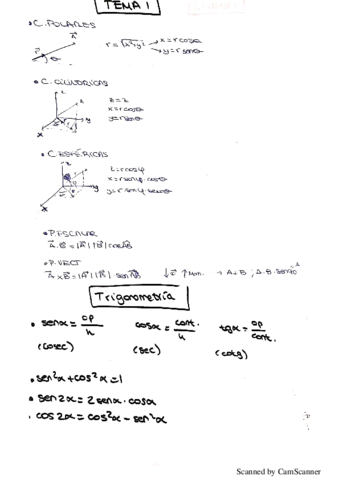 TEMA 1
• C. POLARES
r = √x²+y² → x = r cosα
→ y = r senα
• C. CILÍNDRICAS
z = z
x = r cosθ
y = r senθ
• C. ESFÉRICAS
z = r cosφ
x = r senφ · cosθ
y = r senφ · senθ
• P. ESCALAR
A · B = |A| |B| cos AB
• P. VECT
A × B = |A| |B| sen AB
Trigonometría
• senα = op/h cosα = cont./h tgα = op/cont.
(cosec) (sec) (cotg)
• sen²α + cos²α = 1
• sen 2α = 2 senα · cosα
• cos 2α = cos²α − sen²α
Scanned by CamScanner